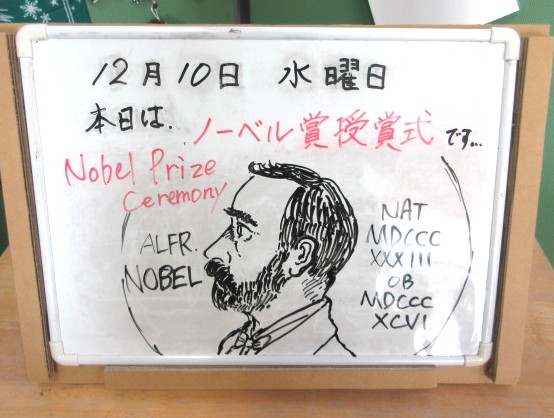 12月10日 水曜日
本日は. ノーベル賞授賞式 です...
Nobel Prize
Ceremony
ALFR.
NOBEL
NAT
MDCCC
XXXIII
OB
MDCCC
XCVI